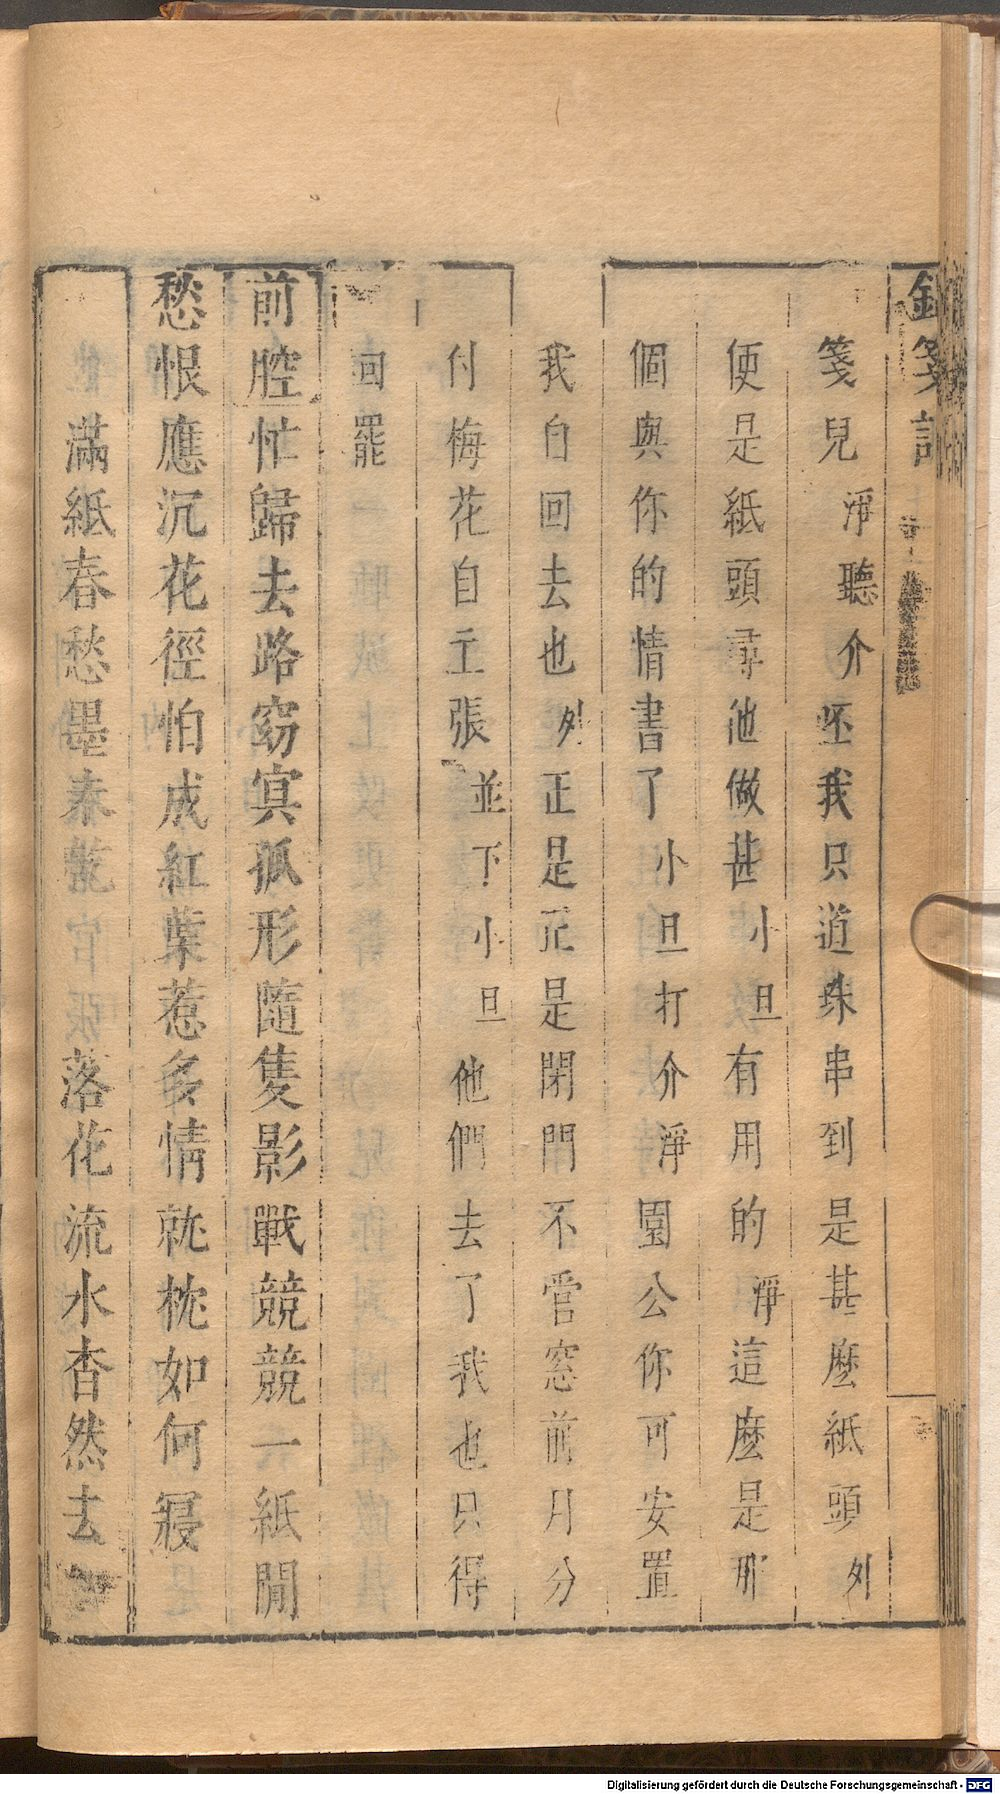 箋
箋兒淨聽介呸我只道珠串到是甚麽紙頭外
便是紙頭尋他做甚小旦有用的淨這麽是那
個與你的情書了小旦打介淨園公你可安置
我自回去也外正是正是閉門不管窓前月分
付梅花自主張並下小旦他們去了我也只得
回罷
前腔忙歸去路窈㝠孤形隨隻影戰競競一紙閒
愁恨應沉花徑怕成紅葉惹多情就枕如何寢
滿紙春愁墨未乾 落花流水杳然去
Digitalisierung gefördert durch die Deutsche Forschungsgemeinschaft - DFG